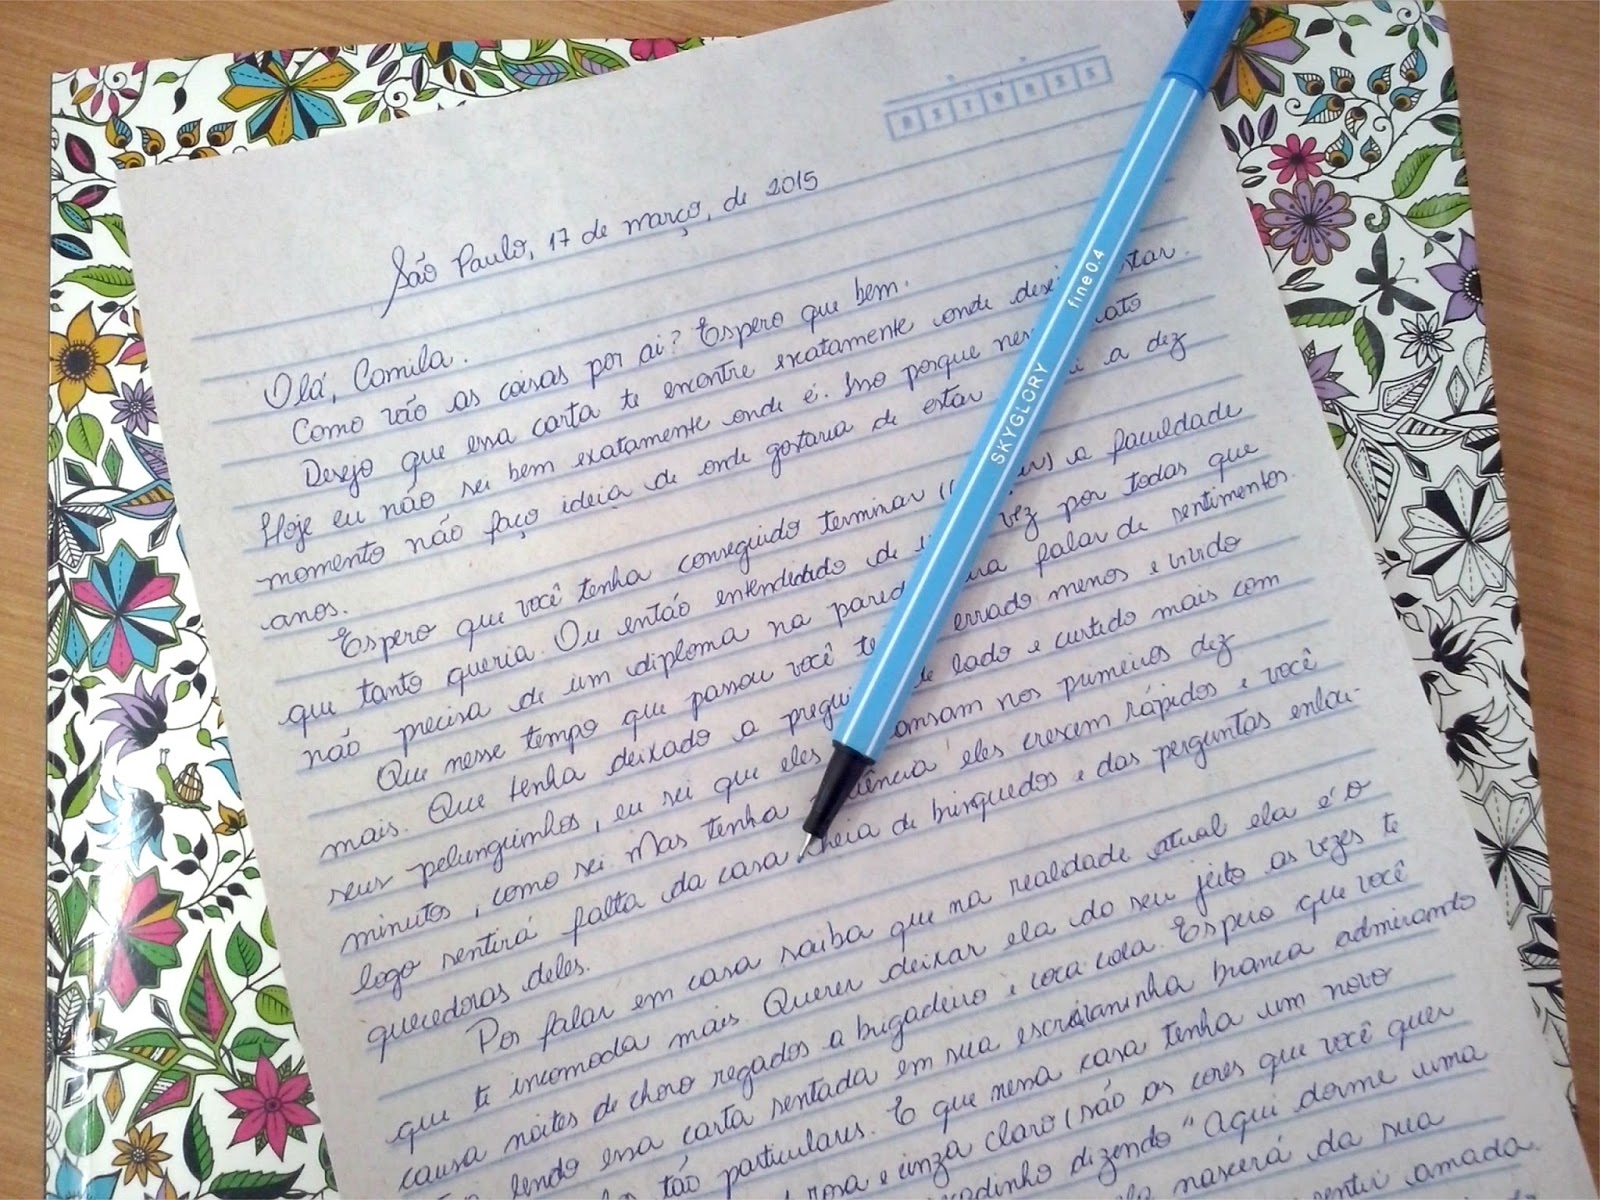 DSTQQSS
São Paulo, 17 de março, de 2015
Olá, Camila.
Como vão as coisas por ai? Espero que bem.
Desejo que essa carta te encontre exatamente onde estar.
Hoje eu não sei bem exatamente onde é. Isso porque
momento não faço ideia de onde gostaria de estar a dez
anos.
Espero que você tenha conseguido terminar a faculdade
que tanto queria. Ou então entendedido de vez por todas que
não precisa de um diploma na falar de sentimentos.
Que nesse tempo que passou você errado menos e vivido
mais. Que tenha deixado a de lado e curtido mais com
seus pelunguinhos, eu sei que eles cansam nos primeiros dez
minutos, como sei. Mas tenha eles crescem rápidos e você
logo sentirá falta da casa cheia de brinquedos e das perguntas enlou-
quecedoras deles.
Por falar em casa saiba que na realdade atual ela é o
que te incomoda mais. Querer deixar ela do seu jeito as vezes te
causa noites de choro regados a brigadeiro e coca cola. Espero que você
lendo essa carta sentada em sua escrivaninha branca admirando
tão particulares. E que nessa casa tenha um novo
rosa e cinza claro (são as cores que você quer
dizendo "Aqui dorme uma
nascerá da sua
amada.
SKYGLORY fine 0.4